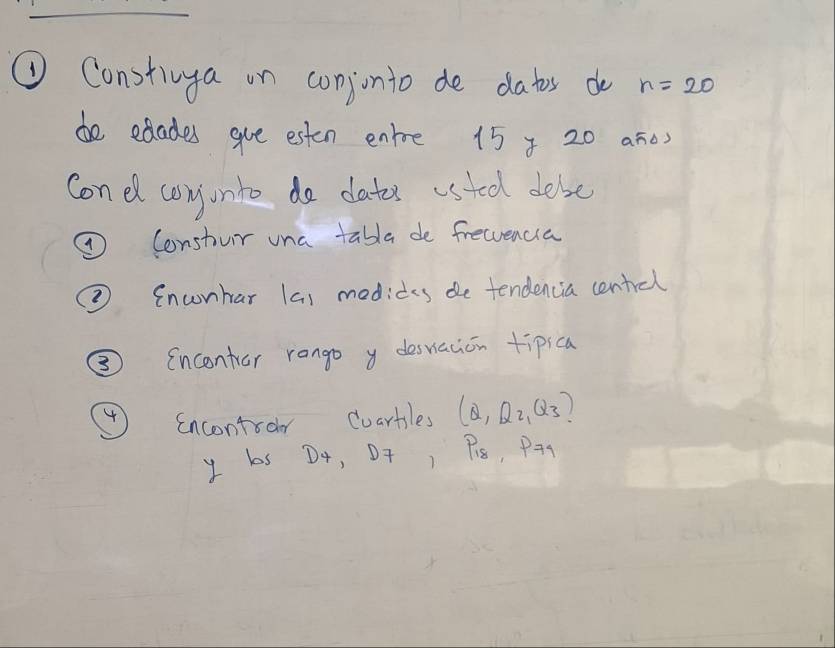 ① Construya un conjunto de datos de n = 20
de edades que esten entre 15 y 20 años
Con el conjunto de datos usted debe
① Construir una tabla de frecuencia
② Encontrar las medidas de tendencia central
③ Encontrar rango y desviación típica
④ Encontrar Cuartiles (Q, Q2, Q3?
y los D4, D7, P18, P79